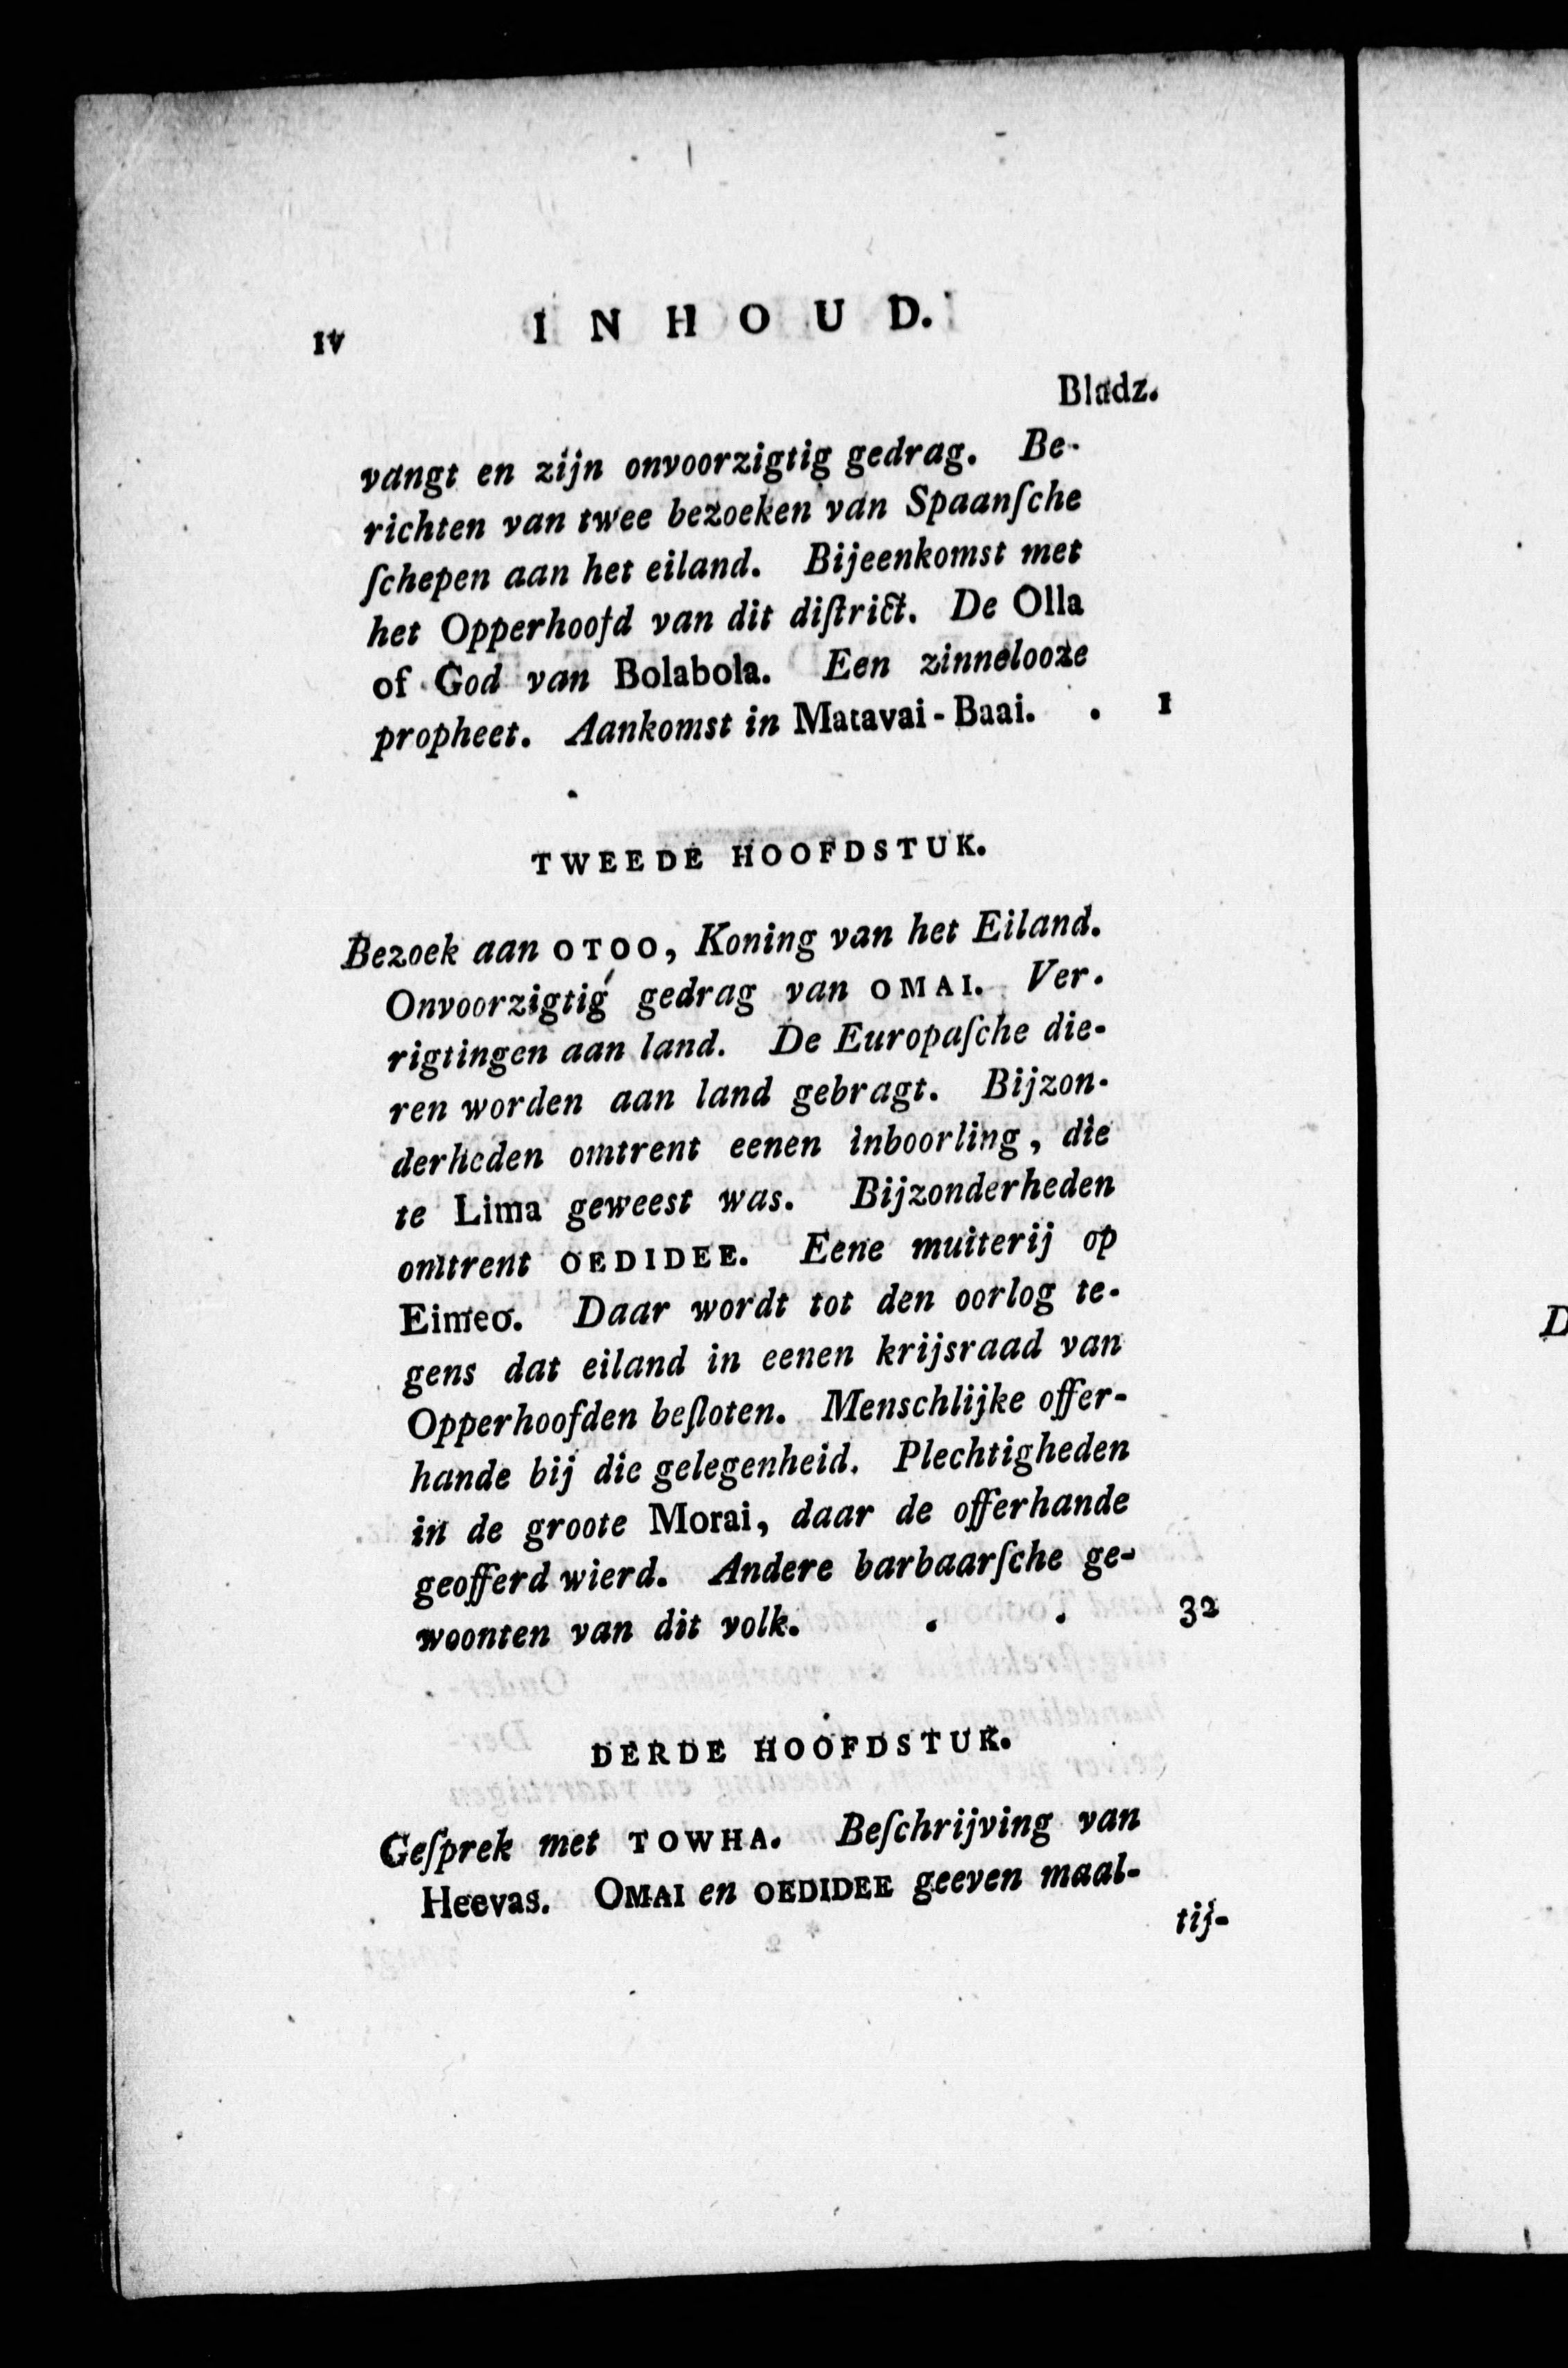 IV
INHOUD.
Bladz.
vangt en zijn onvoorzigtig gedrag. Be-
richten van twee bezoeken van Spaanſche
ſchepen aan het eiland. Bijeenkomst met
het Opperhoofd van dit diſtrict. De Olla
of God van Bolabola. Een zinnelooze
propheet. Aankomst in Matavai-Baai. . 1
TWEEDE HOOFDSTUK.
Bezoek aan OTOO, Koning van het Eiland.
Onvoorzigtig gedrag van OMAI. Ver-
rigtingen aan land. De Europaſche die-
ren worden aan land gebragt. Bijzon-
derheden omtrent eenen inboorling, die
te Lima geweest was. Bijzonderheden
omtrent OEDIDEE. Eene muiterij op
Eimeo. Daar wordt tot den oorlog te-
gens dat eiland in eenen krijsraad van
Opperhoofden beſloten. Menschlijke offer-
hande bij die gelegenheid. Plechtigheden
in de groote Morai, daar de offerhande
geofferd wierd. Andere barbaarſche ge-
woonten van dit volk. . . 32
DERDE HOOFDSTUK.
Geſprek met TOWHA. Beſchrijving van
Heevas. OMAI en OEDIDEE geeven maal-
tij-
D